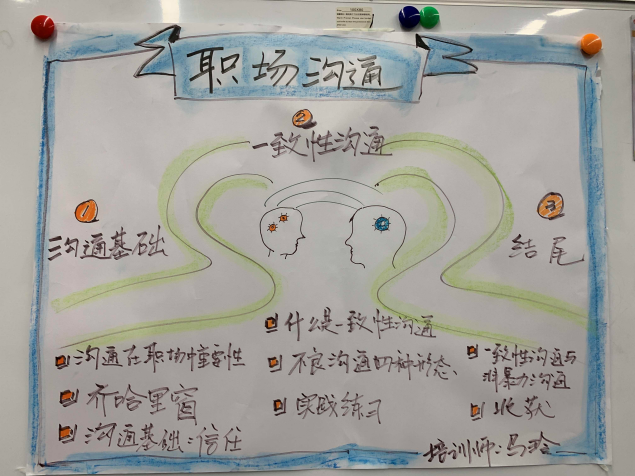 职场沟通
②
一致性沟通
①
沟通基础
③
结尾
沟通在职场中重要性
乔哈里窗
沟通基础:信任
什么是一致性沟通
不良沟通四种形态、
实践练习
一致性沟通与
非暴力沟通
收获
培训师:马玲